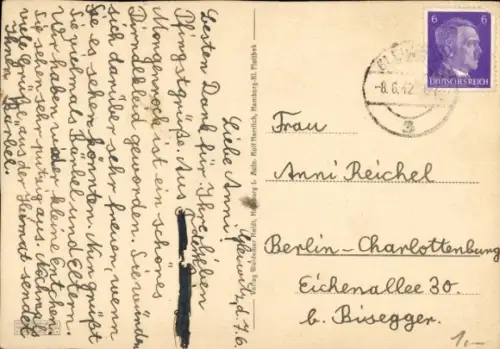 Liebe Anni!
Besten Dank für Ihre lieben
Pfingstgrüße. Aus
Morgenrock ist ein schönes
Dirndlkleid geworden. Sie würden
sich darüber sehr freuen, wenn
Sie es sehen könnten. Nun grüßt
Sie vielmals Bärbel und Eltern.
Wir haben wieder kleine Entchen.
Sie sehen sehr putzig aus. Nochmals
viele Grüße aus der Heimat sendet
Ihnen
Bärbel.
d. 7.6.
Hamburg-Kl. Flottbek
6 6
DEUTSCHES REICH
-8.6.42
a
Frau
Anni Reichel
Berlin-Charlottenburg
Eichenallee 30.
b. Bisegger.
1,-